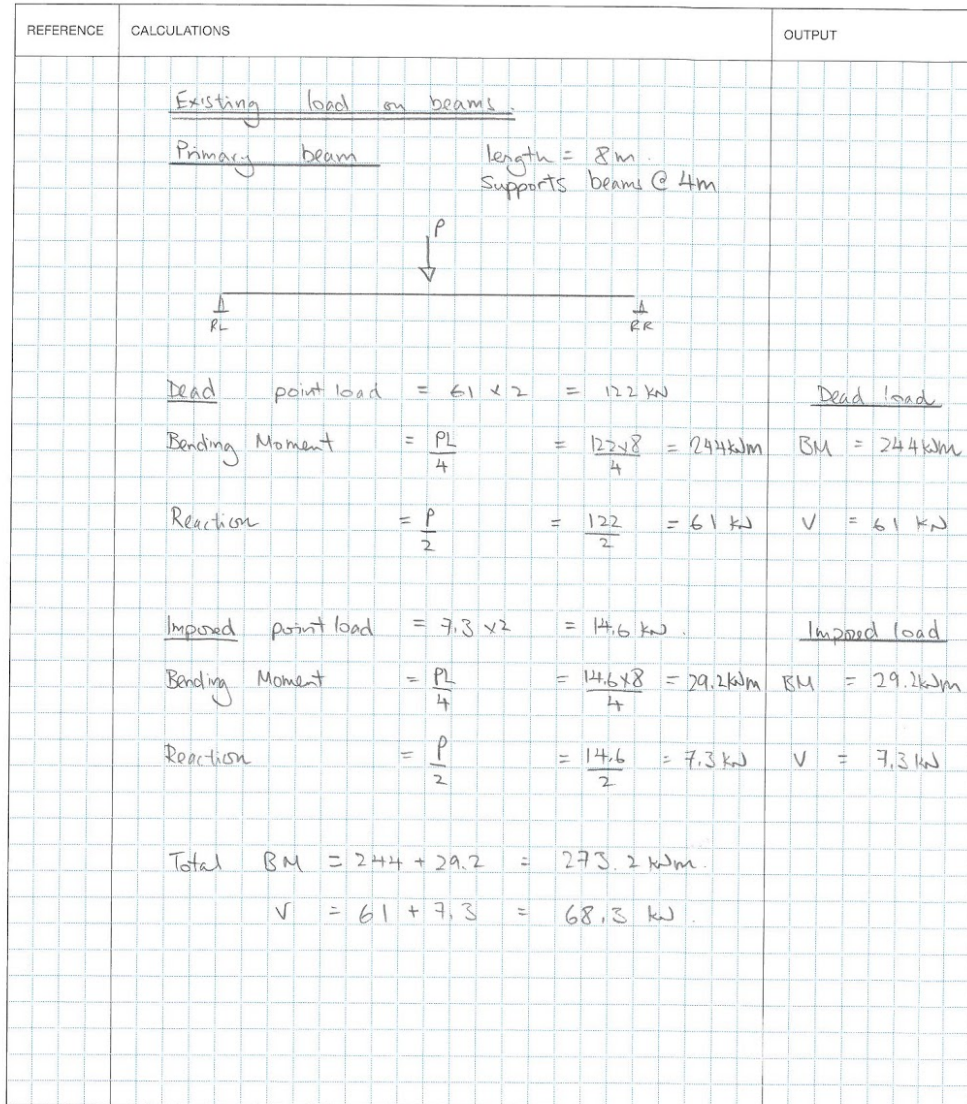 REFERENCE CALCULATIONS OUTPUT
Existing load on beams.
Primary beam length = 8m.
Supports beams @ 4m
P
RL RR
Dead point load = 61 x 2 = 122 kN Dead load
Bending Moment = PL/4 = 122x8/4 = 244kNm BM = 244kNm
Reaction = P/2 = 122/2 = 61 kN V = 61 kN
Imposed point load = 7.3 x2 = 14.6 kN. Imposed load
Bending Moment = PL/4 = 14.6x8/4 = 29.2kNm BM = 29.2kNm
Reaction = P/2 = 14.6/2 = 7.3 kN V = 7.3 kN
Total BM = 244 + 29.2 = 273.2 kNm.
V = 61 + 7.3 = 68.3 kN.